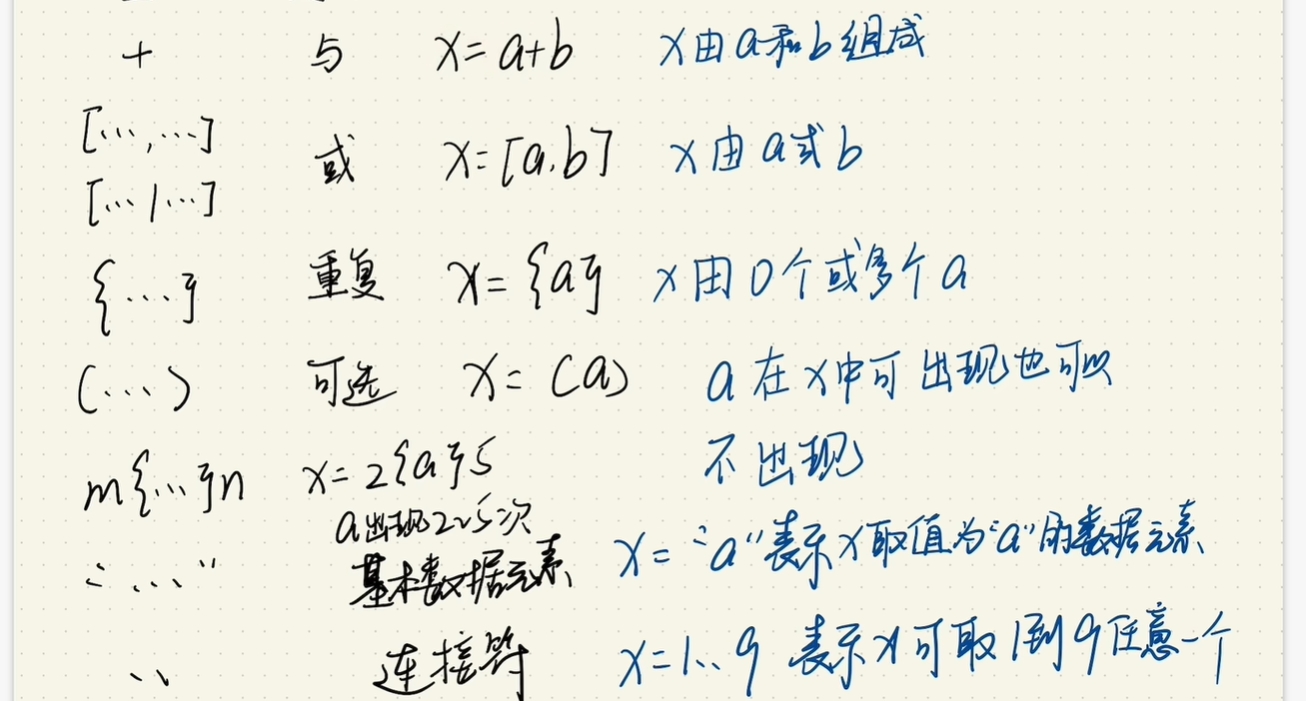 + 与 x=a+b x由a和b组成
[...,...]
或 x=[a,b] x由a或b
[...|...]
{...} 重复 x={a} x由0个或多个a
(...) 可选 x=(a) a在x中可出现也可以
不出现
m{...}n x=2{a}5
a出现2~5次
“...” 基本数据元素 x=“a”表示x取值为“a”的数据元素
.. 连接符 x=1..9 表示x可取1到9任意一个